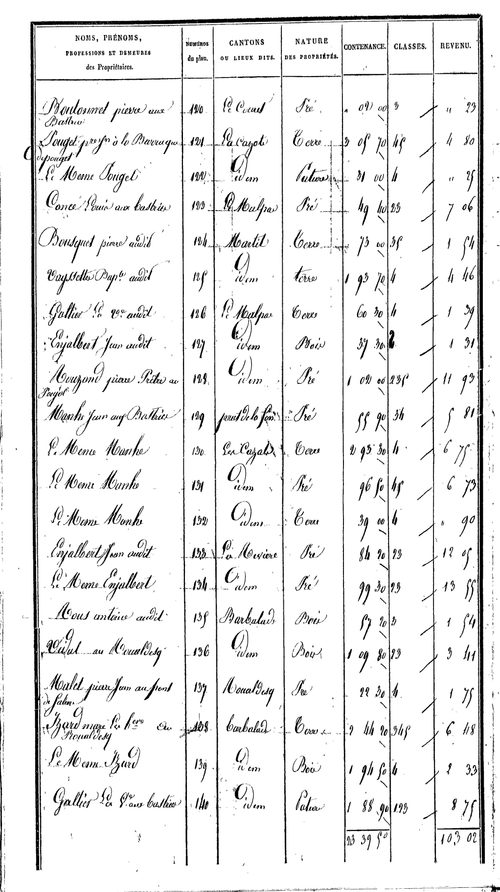 NOMS, PRÉNOMS, PROFESSIONS ET DEMEURES des Propriétaires. NUMÉROS du plan. CANTONS OU LIEUX DITS. NATURE DES PROPRIÉTÉS. CONTENANCE. CLASSES. REVENU.
Boulonnet pierre aux 120 Pré " 02 00 3 " 23
Pouget à la Barraque 121 La Cazote Terre 3 05 70 45 4 80
Le Meme Pouget 122 idem Pature 31 00 4 " 25
Louis aux Castries 123 Le Malpas Pré 49 40 23 7 06
Bousquet pierre audit 124 Martel Terre 73 00 35 1 54
Vayssettes Bapte audit 125 idem terre 1 93 70 4 4 46
Galtier La Ve audit 126 Le Malpas Terre 60 30 4 1 39
Enjalbert Jean audit 127 idem Bois 37 30 2 1 31
Mouzand pierre Prêtre au 128 idem Pré 1 02 00 235 11 93
Manhe Jean aux 129 pont de la Pré 55 90 34 5 81
Le Meme Manhe 130 Terre 2 93 30 4 6 75
Le Meme Manhe 131 idem Pré 96 50 45 6 73
Le Meme Manhe 132 idem Terre 39 00 4 " 90
Enjalbert Jean audit 133 La Pré 84 20 23 12 05
Le Meme Enjalbert 134 idem Pré 99 30 23 13 55
Mous antoine audit 135 Barbalade Bois 57 20 3 1 54
Vidal au 136 idem Bois 1 09 80 23 3 41
Malet pierre Jean au pont 137 Pré 22 30 4 1 75
Izard 138 barbalad Terre 2 44 20 345 6 48
Le Meme Izard 139 idem Bois 1 94 50 4 2 33
Galtier La Ve aux Castries 140 idem Pature 1 88 90 123 8 75
23 39 50 103 02